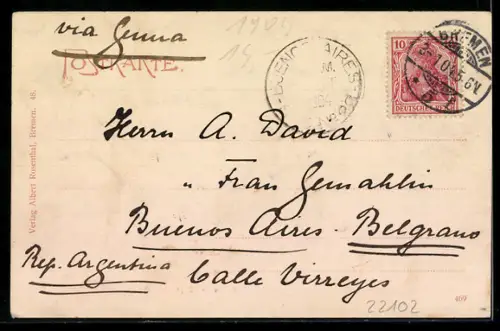 1904
via Genua
POSTKARTE.
BUENOS AIRES
10
DEUTSCHES REICH
BREMEN
5-6N
Herrn A. David
„ Frau Gemahlin
Buenos Aires - Belgrano
Rep. Argentina Calle Virreyes
Verlag Albert Rosenthal, Bremen. 48.
22102
469